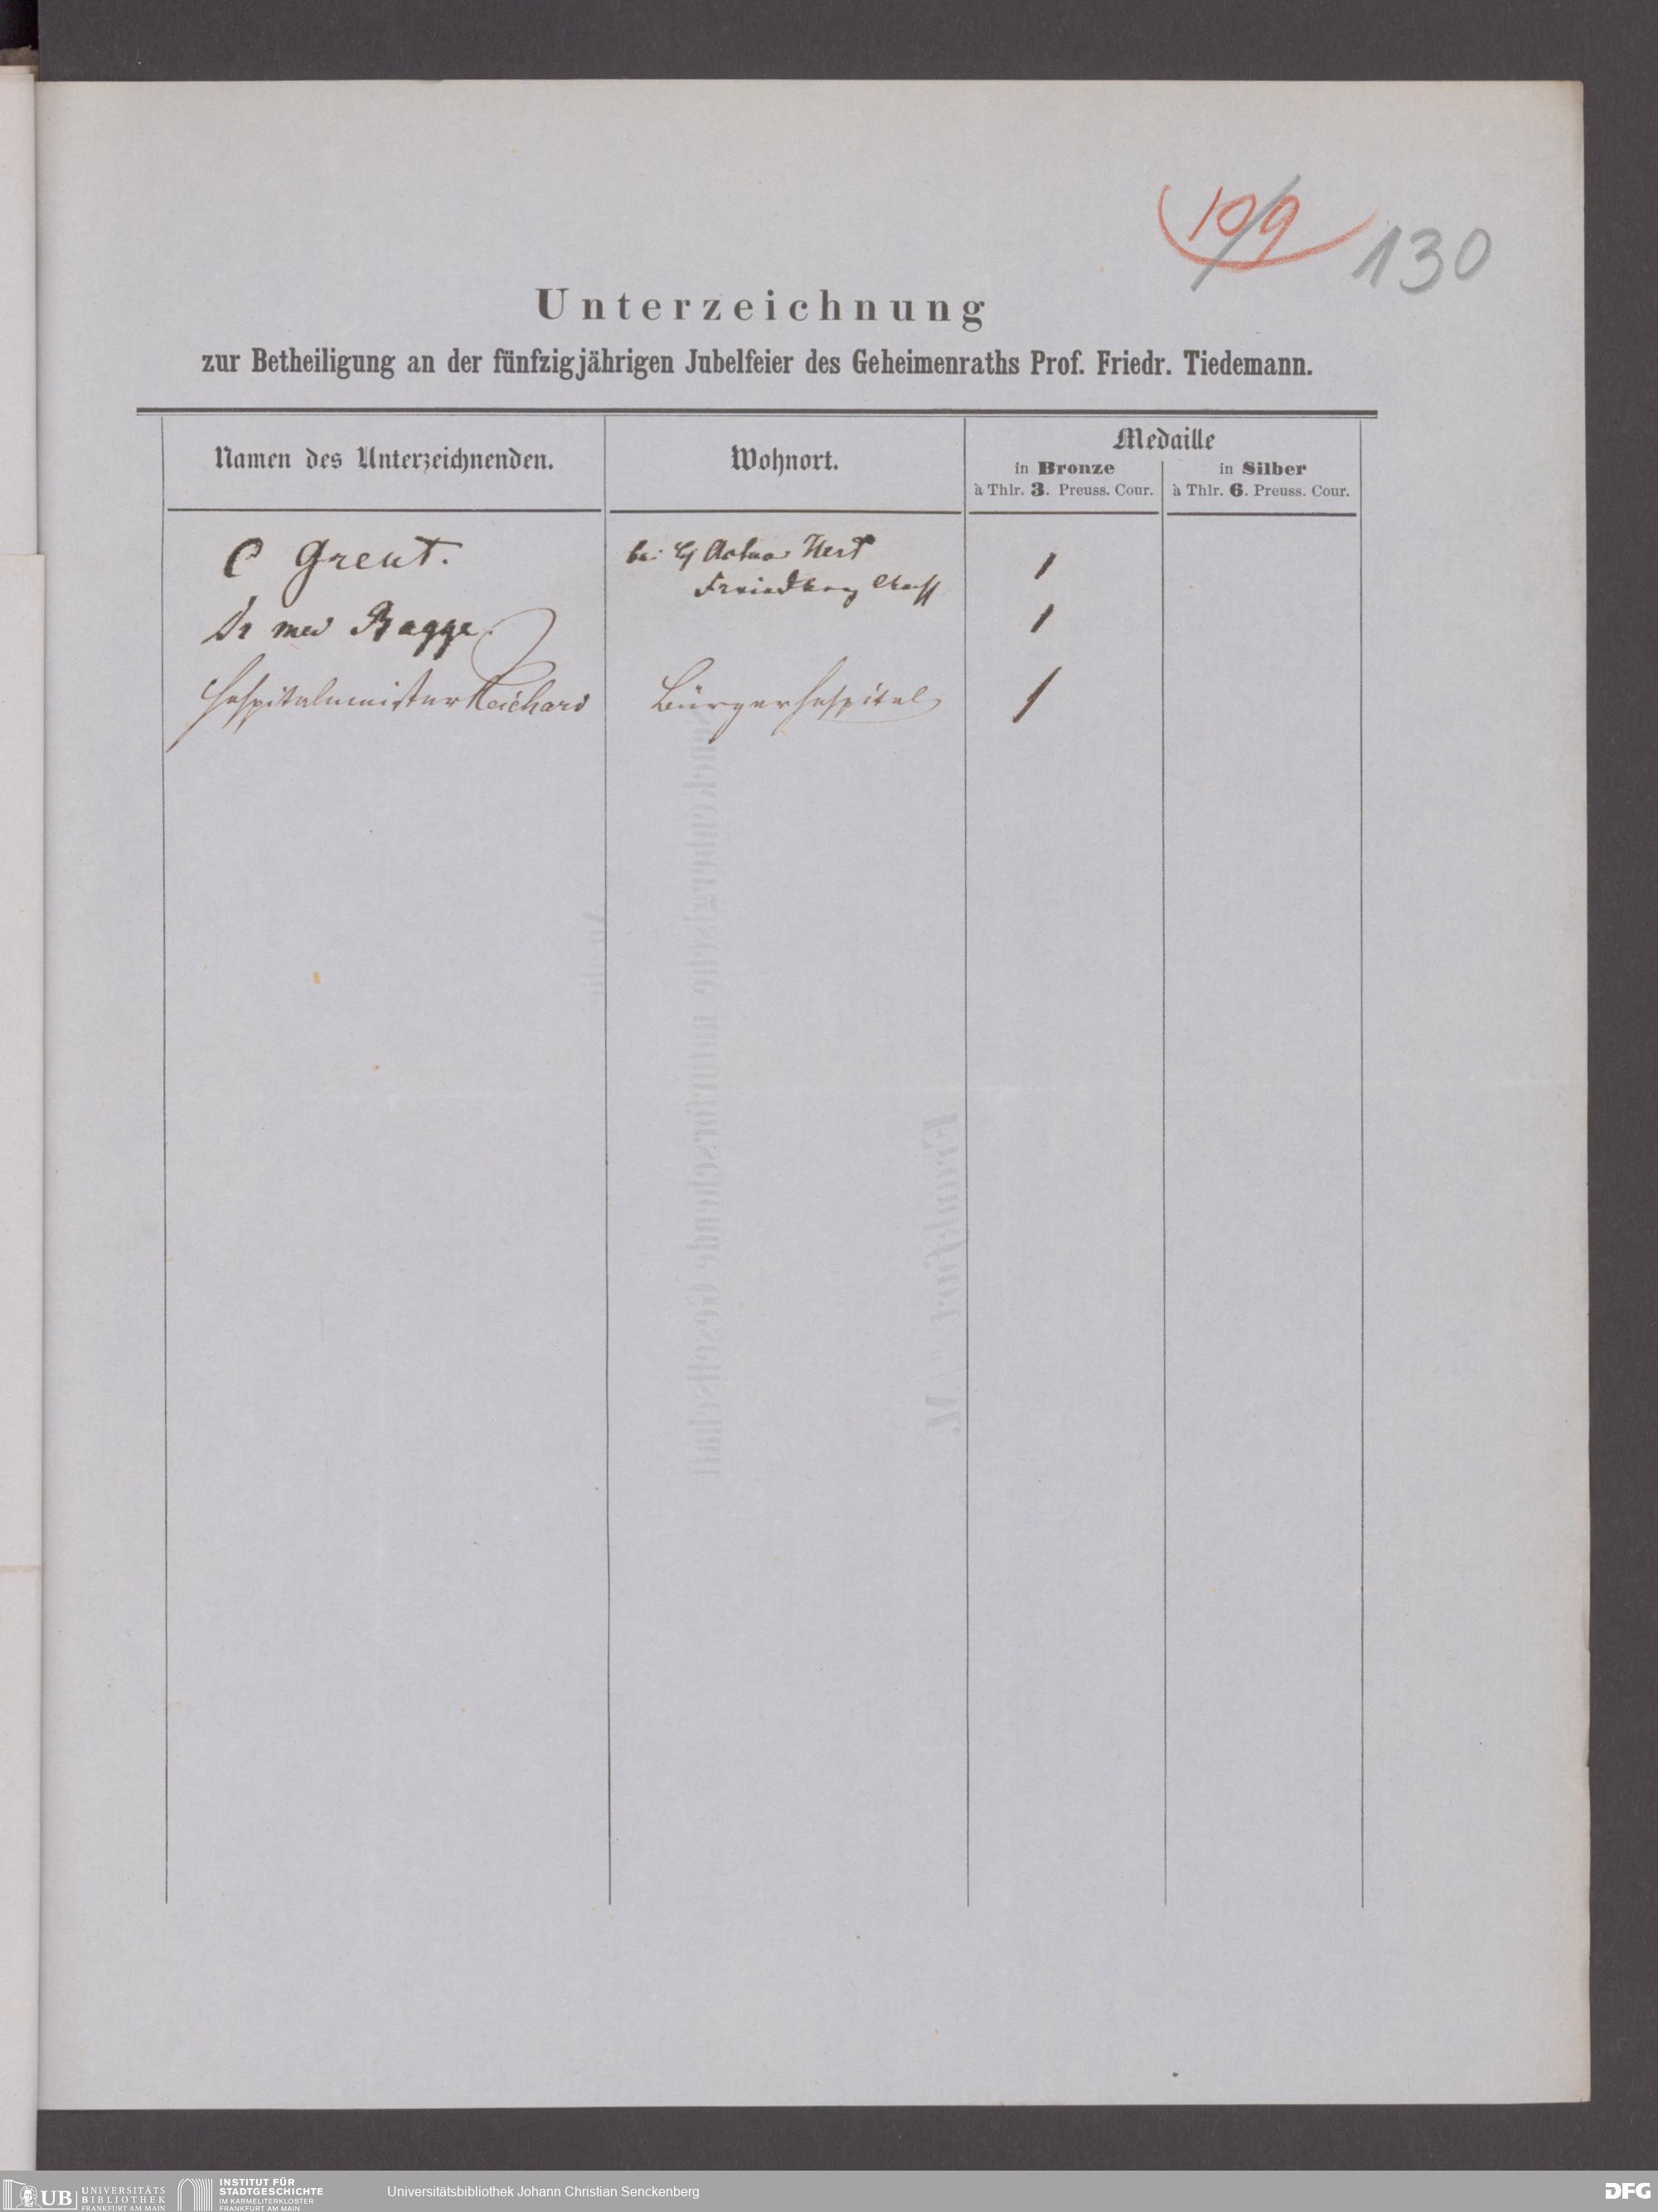 109
130
Unterzeichnung
zur Betheiligung an der fünfzigjährigen Jubelfeier des Geheimenraths Prof. Friedr. Tiedemann.
Namen des Unterzeichnenden.
Wohnort.
Medaille
in Bronze
à Thlr. 3. Preuss. Cour.
in Silber
à Thlr. 6. Preuss. Cour.
C Greut.
bei Actuar Hert
Friedberg
1
Dr med Bagge
1
Hospitalmeister Reichard
Bürgerhospital
1
An die
Senckenbergische naturforschende Gesellschaft
Frankfurt a/M.
UB UNIVERSITÄTS
BIBLIOTHEK
FRANKFURT AM MAIN
INSTITUT FÜR
STADTGESCHICHTE
IM KARMELITERKLOSTER
FRANKFURT AM MAIN
Universitätsbibliothek Johann Christian Senckenberg
DFG